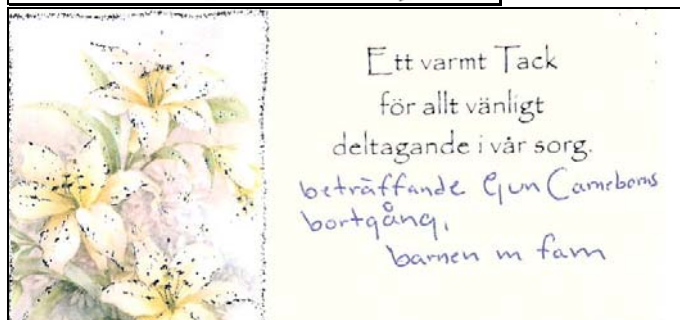 Ett varmt Tack
för allt vänligt
deltagande i vår sorg.
beträffande Gun Carneborns
bortgång,
barnen m fam